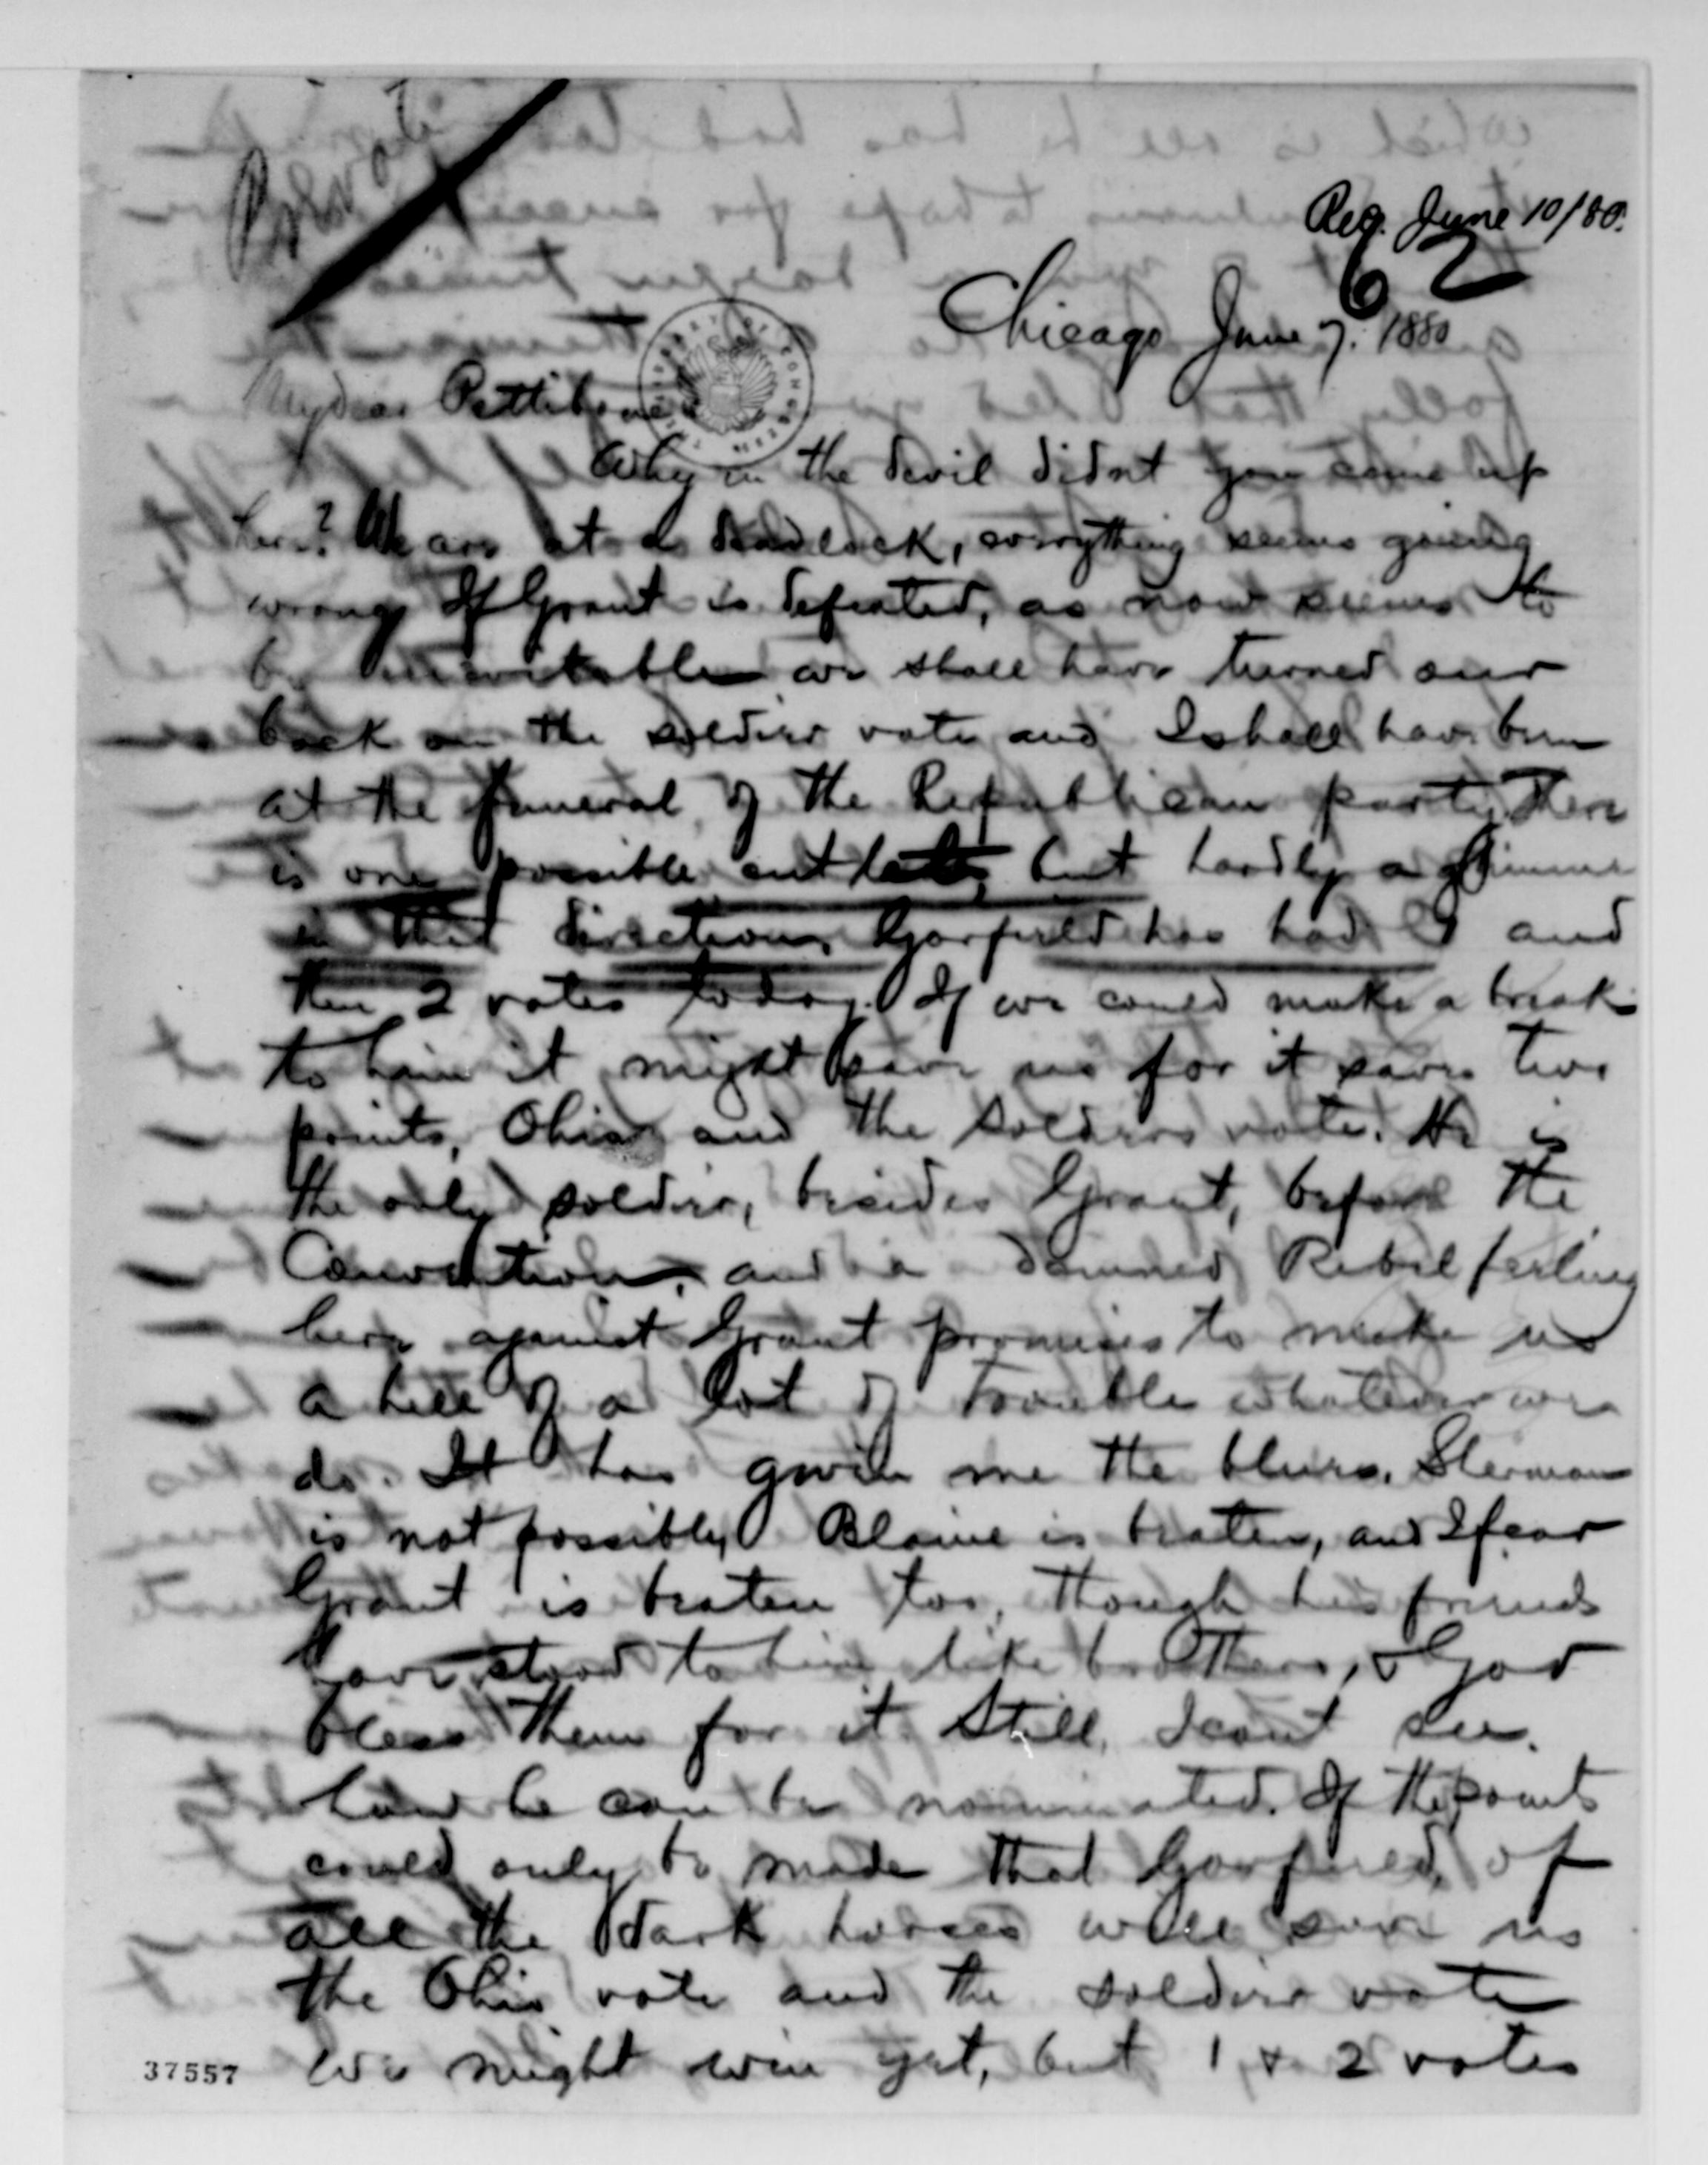 Private
Rec. June 10/80.
62
Chicago June 7. 1880
My dear Pettibone
Why in the devil didnt you come up
here? We are at a deadlock, everything seems going
wrong. If Grant is defeated, as now seems to
be inevitable we shall have turned our
back on the soldier vote and I shall have been
at the funeral of the Republican party. There
is one possible outlet, but hardly a glimmer
in that direction. Garfield has had 1 and
then 2 votes today. If we could make a break
to him it might save us for it saves two
points, Ohio and the soldiers vote. He is
the only soldier, besides Grant, before the
Convention, and a damned Rebel feeling
here against Grant promises to make us
a hell of a lot of trouble whatever we
do. It has given me the blues. Sherman
is not possible, Blaine is beaten, and I fear
Grant is beaten too, though his friends
have stood to him like brothers, & God
bless them for it. Still, I cant see
how he can be nominated. If the points
could only be made that Garfield, of
all the dark horses will save us
the Ohio vote and the soldier vote
we might win yet, but 1 & 2 votes
37557